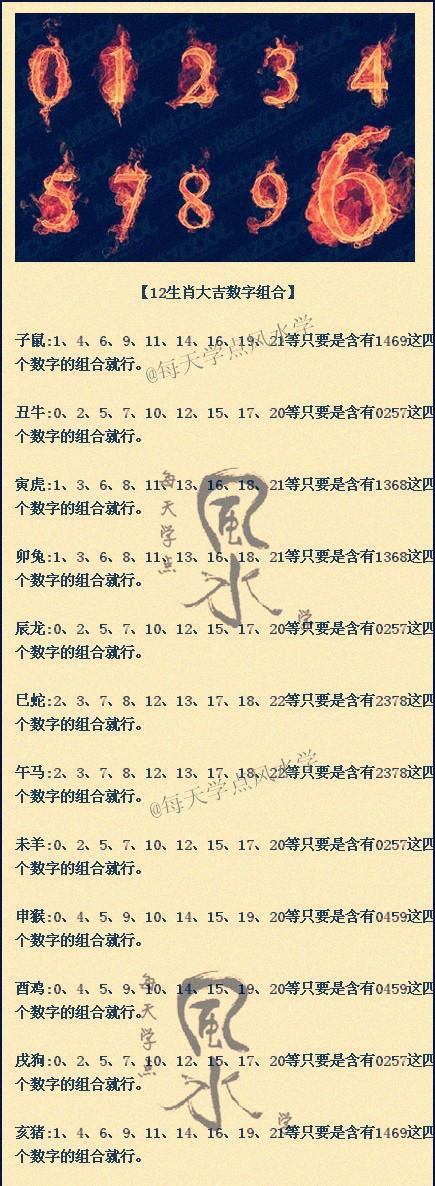 0 1 2 3 4
5 7 8 9 6
【12生肖大吉数字组合】
子鼠:1、4、6、9、11、14、16、19、21等只要是含有1469这四
个数字的组合就行。
@每天学点风水学
丑牛:0、2、5、7、10、12、15、17、20等只要是含有0257这四
个数字的组合就行。
寅虎:1、3、6、8、11、13、16、18、21等只要是含有1368这四
个数字的组合就行。
每天学点
風水
学
卯兔:1、3、6、8、11、13、16、18、21等只要是含有1368这四
个数字的组合就行。
辰龙:0、2、5、7、10、12、15、17、20等只要是含有0257这四
个数字的组合就行。
巳蛇:2、3、7、8、12、13、17、18、22等只要是含有2378这四
个数字的组合就行。
午马:2、3、7、8、12、13、17、18、22等只要是含有2378这四
个数字的组合就行。
@每天学点风水学
未羊:0、2、5、7、10、12、15、17、20等只要是含有0257这四
个数字的组合就行。
申猴:0、4、5、9、10、14、15、19、20等只要是含有0459这四
个数字的组合就行。
酉鸡:0、4、5、9、10、14、15、19、20等只要是含有0459这四
个数字的组合就行。
每天学点
風水
学
戌狗:0、2、5、7、10、12、15、17、20等只要是含有0257这四
个数字的组合就行。
亥猪:1、4、6、9、11、14、16、19、21等只要是含有1469这四
个数字的组合就行。